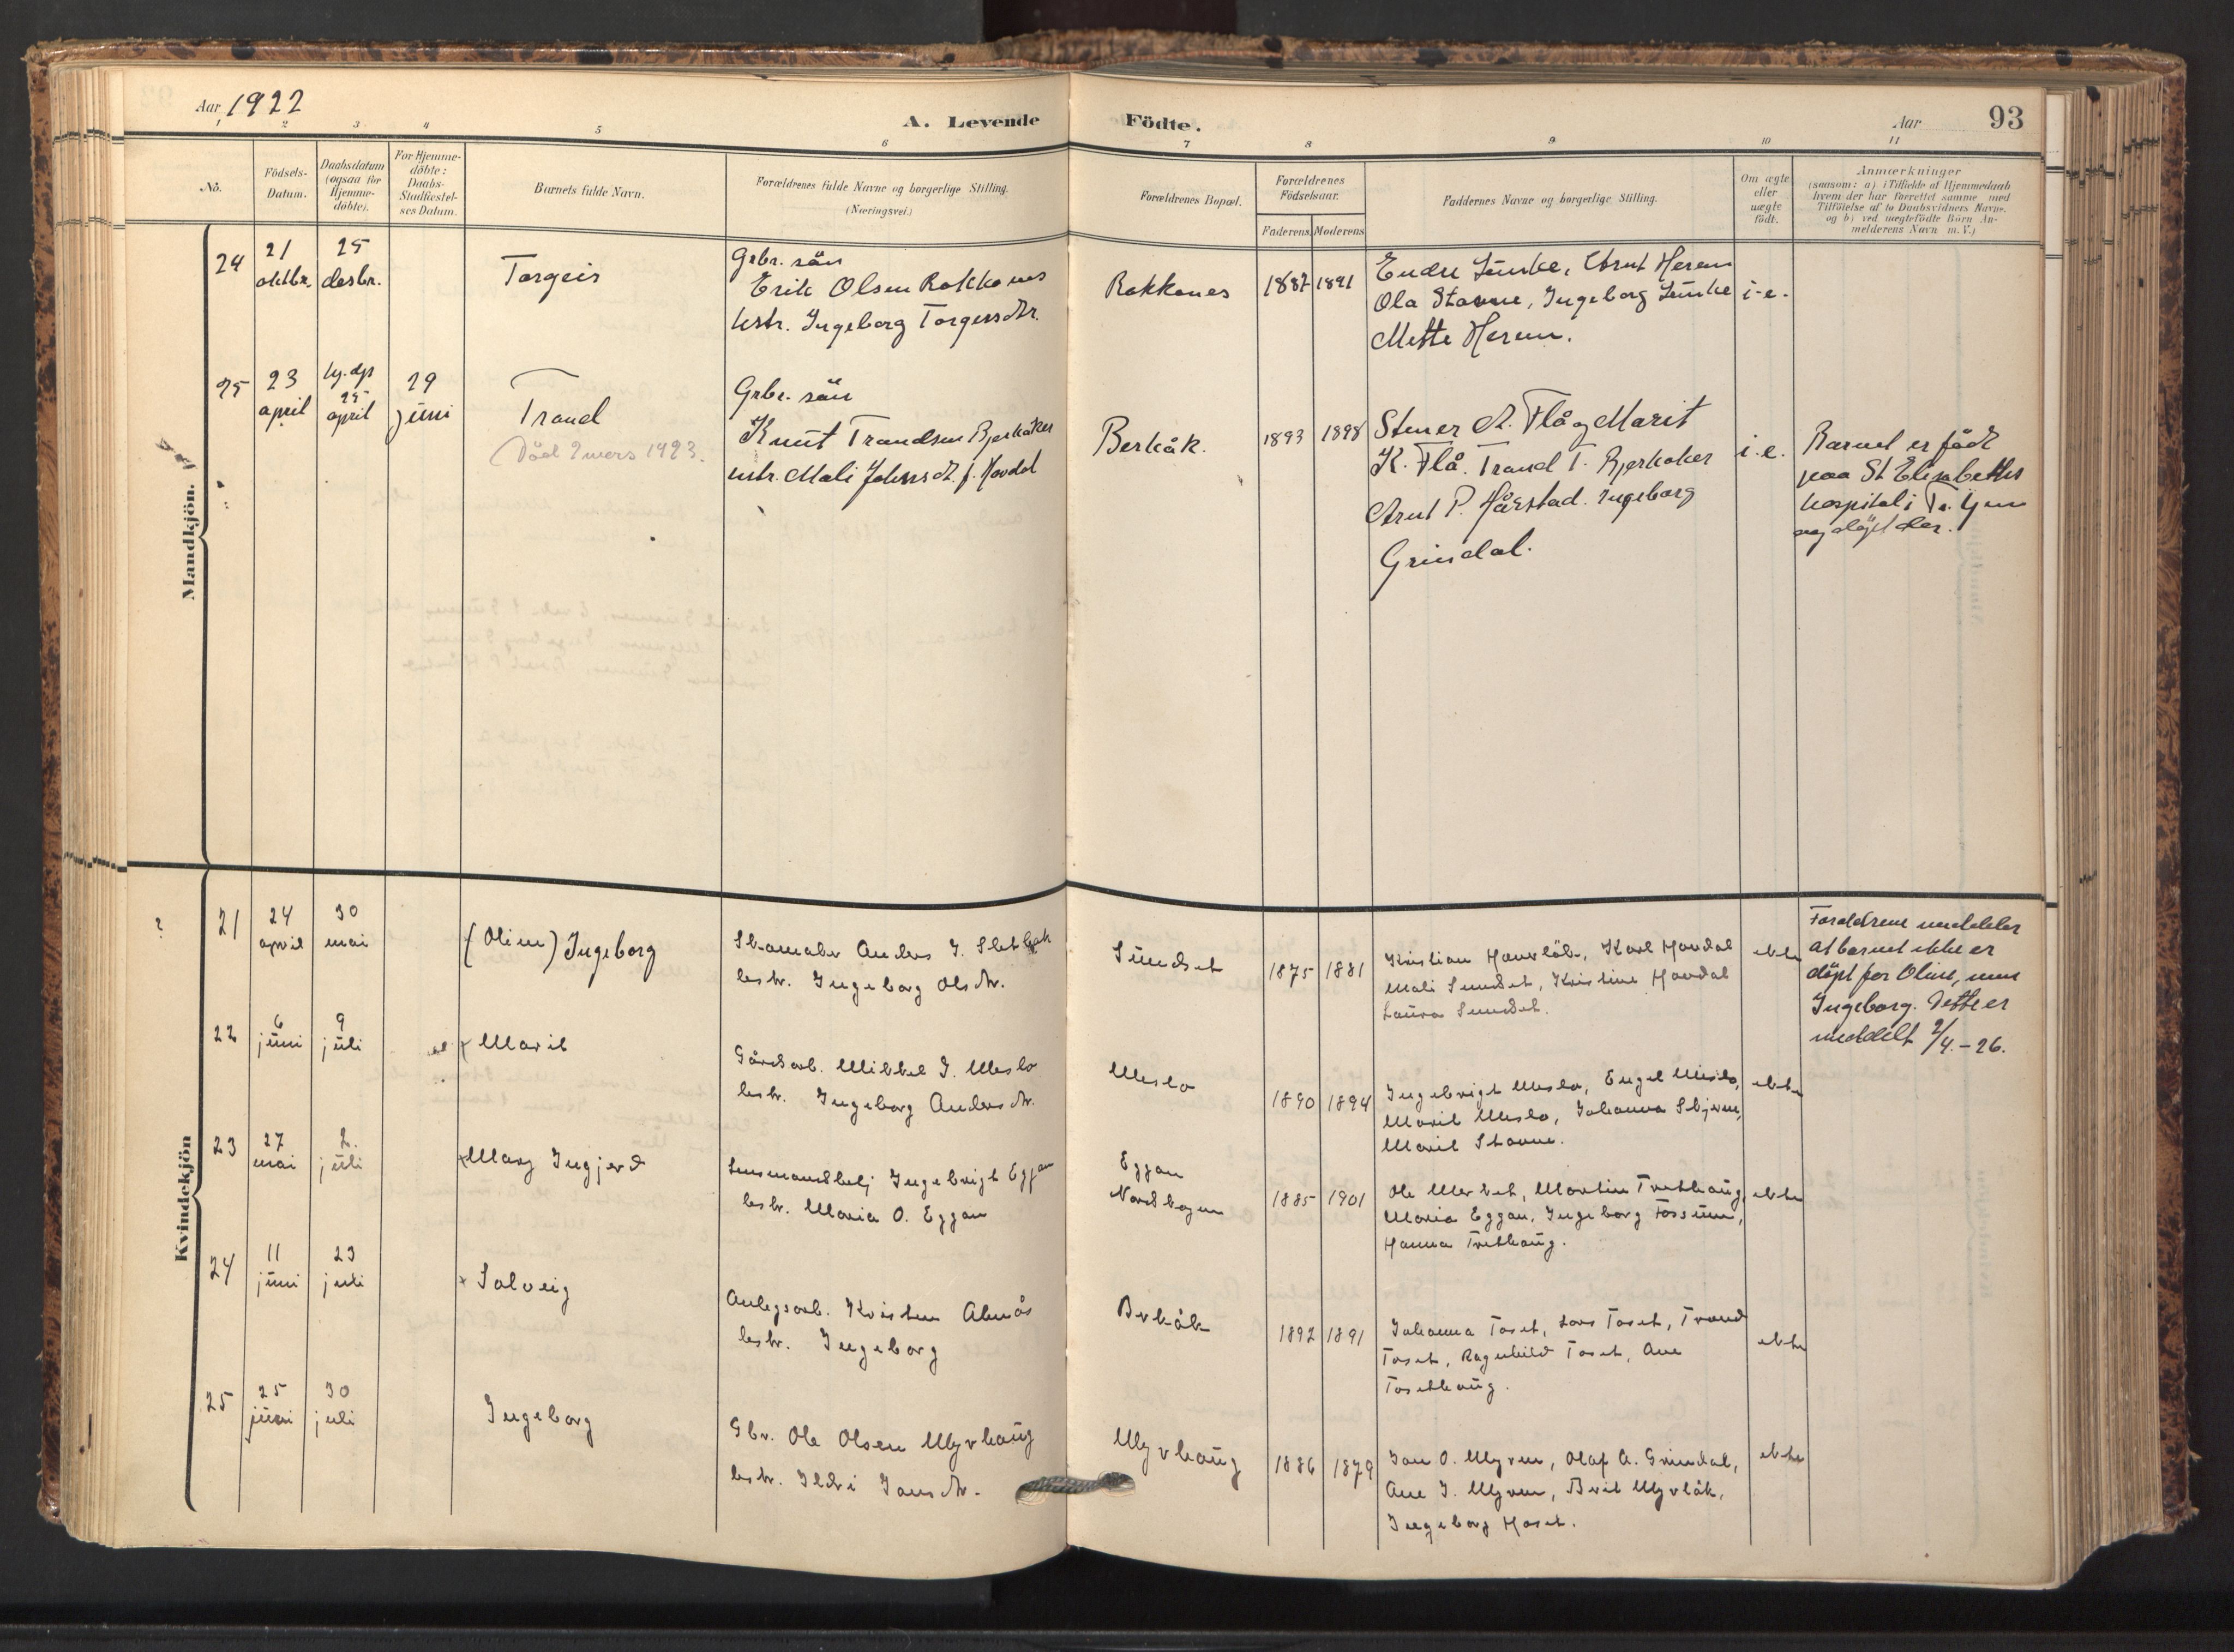 Aar 1922
A. Levende
Födte.
Aar
93
1 2 3 4 5 6 7 8 9 10 11
No.
Födsels-
Datum.
Daabsdatum
(ogsaa for
Hjemme-
döbte).
For Hjemme-
döbte:
Daabs-
Stadfæstel-
ses Datum.
Barnets fulde Navn.
Forældrenes fulde Navne og borgerlige Stilling.
(Næringsvei.)
Forældrenes Bopæl.
Forældrenes
Födselsaar.
Faderens. Moderens
Faddernes Navne og borgerlige Stilling.
Om ægte
eller
uægte
födt.
Anmærkninger
(saasom: a) i Tilfælde af Hjemmedaab
hvem der har forrettet samme med
Tilföielse af to Daabsvidners Navne.
og b) ved uægtefödte Börn An-
melderens Navn m. V.)
Mandkjön.
24
21
oktbr.
25
desbr.
Torgeir
Grbr. sön
Erik Olsen Rokkones
hstr. Ingeborg Torgersdtr.
Rokkones
1887 1891
Endre Lünke, Arnt Herem
Ola Stavne, Ingeborg Lünke
Mette Herem.
i-e-
25
23
april
hj. dp
25
april
29
jüni
Trond
Död 2 mars 1923.
Grbr. sön
Knut Trondsen Bjerkaker
hstr. Mali Johnsdt. f. Hovdal
Berkåk.
1893 1898
Stener A. Flå og Marit
K. Flå. Trond T. Bjerkaker
Arnt P. Hårstad. Ingeborg
Grindal.
i.e.
Barnet er född
paa St Elisabeths
hospital i Tr. hjem
og döpt der.
Kvindekjön
?
21
24
april
30
mai
(Oline) Ingeborg
Skomaker Anders J. Sletbak
hstr. Ingeborg Olsdtr.
Sündset
1875 1881
Kristian Haverlök, Karl Hovdal
Mali Sundset, Kristine Hovdal
Laura Sundset.
ekte
Foreldrene meddeler
at barnet ikke er
döpt for Oline, men
Ingeborg. Dette er
meddelt 2/4.-26.
22
6
jüni
9
jüli
Marit
Gårdarb. Mikkel J. Meslo
hstr. Ingeborg Andersdtr.
Meslo
1890 1894
Ingebrigt Meslo, Engel Meslo,
Marit Meslo, Johanna Skjerve,
Marit Stavne.
ekte
23
27
mai
2.
jüli
Mary Ingjerd
Lensmandbetj Ingebrigt Eggan
hstr. Maria O. Eggan
Eggan
Nordbagen
1885 1901
Ole Merket, Martin Trethaüg,
Maria Eggan, Ingeborg Fossüm,
Hanna Trethaüg.
ekte
24
11
jüni
23
juli
Solveig
Anlegsarb. Kristen Almås
hstr. Ingeborg
Berkåk
1892 1891
Johanna Toset, Lars Toset, Trond
Toset, Ragnhild Toset, Ane
Tosethaüg.
ekte
25
25
jüni
30
juli
Ingeborg
Gbr. Ole Olsen Myrhaüg
hstr. Ildri Jonsdtr.
Myrhaüg
1886 1879
Jon O. Myren, Olaf A. Grindal,
Ane J. Myren, Berit Myrlök,
Ingeborg Hoset.
ekte